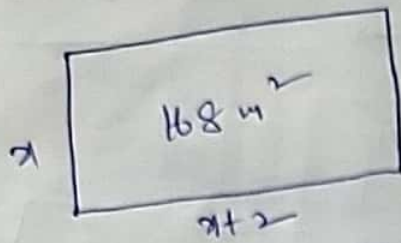 168 m²
x
x + 2